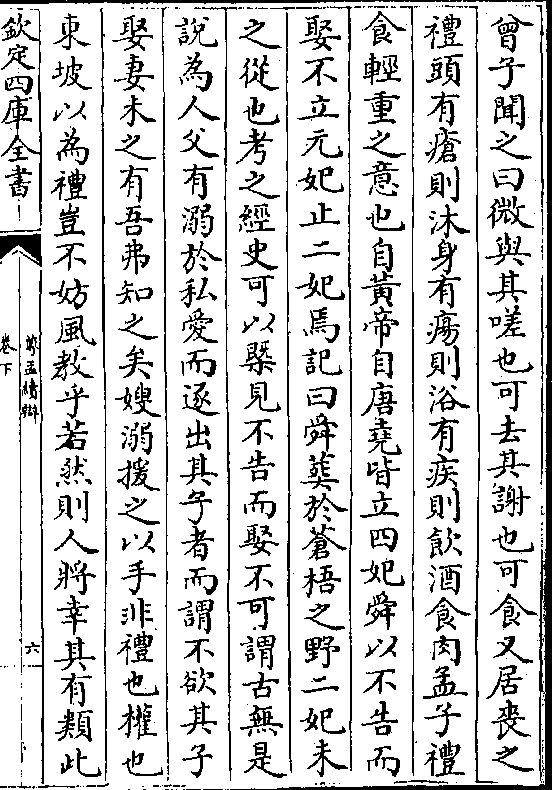 曾子聞之曰微與其嗟也可去其謝也可食又居喪之
禮頭有瘡則沐身有瘍則浴有疾則飲酒食肉孟子禮
食輕重之意也自黄帝自唐堯皆立四妃舜以不告而
娶不立元妃止二妃焉記曰舜葬於蒼梧之野二妃未
之從也考之經史可以槩見不告而娶不可謂古無是
說為人父有溺於私愛而逐出其子者而謂不欲其子
娶妻未之有吾弗知之矣嫂溺援之以手非禮也權也
東坡以為禮豈不妨風教乎若然則人將幸其有類此
欽定四庫全書
尊孟續辯
卷下
六